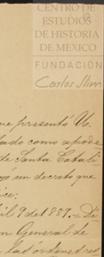 CENTRO DE
ESTUDIOS
DE HISTORIA
DE MEXICO
FUNDACIÓN
Carlos Slim
que presentó Vo.
lado como apode
de Santa Catali
en decreto que
il 9 de 1859. De
n General de